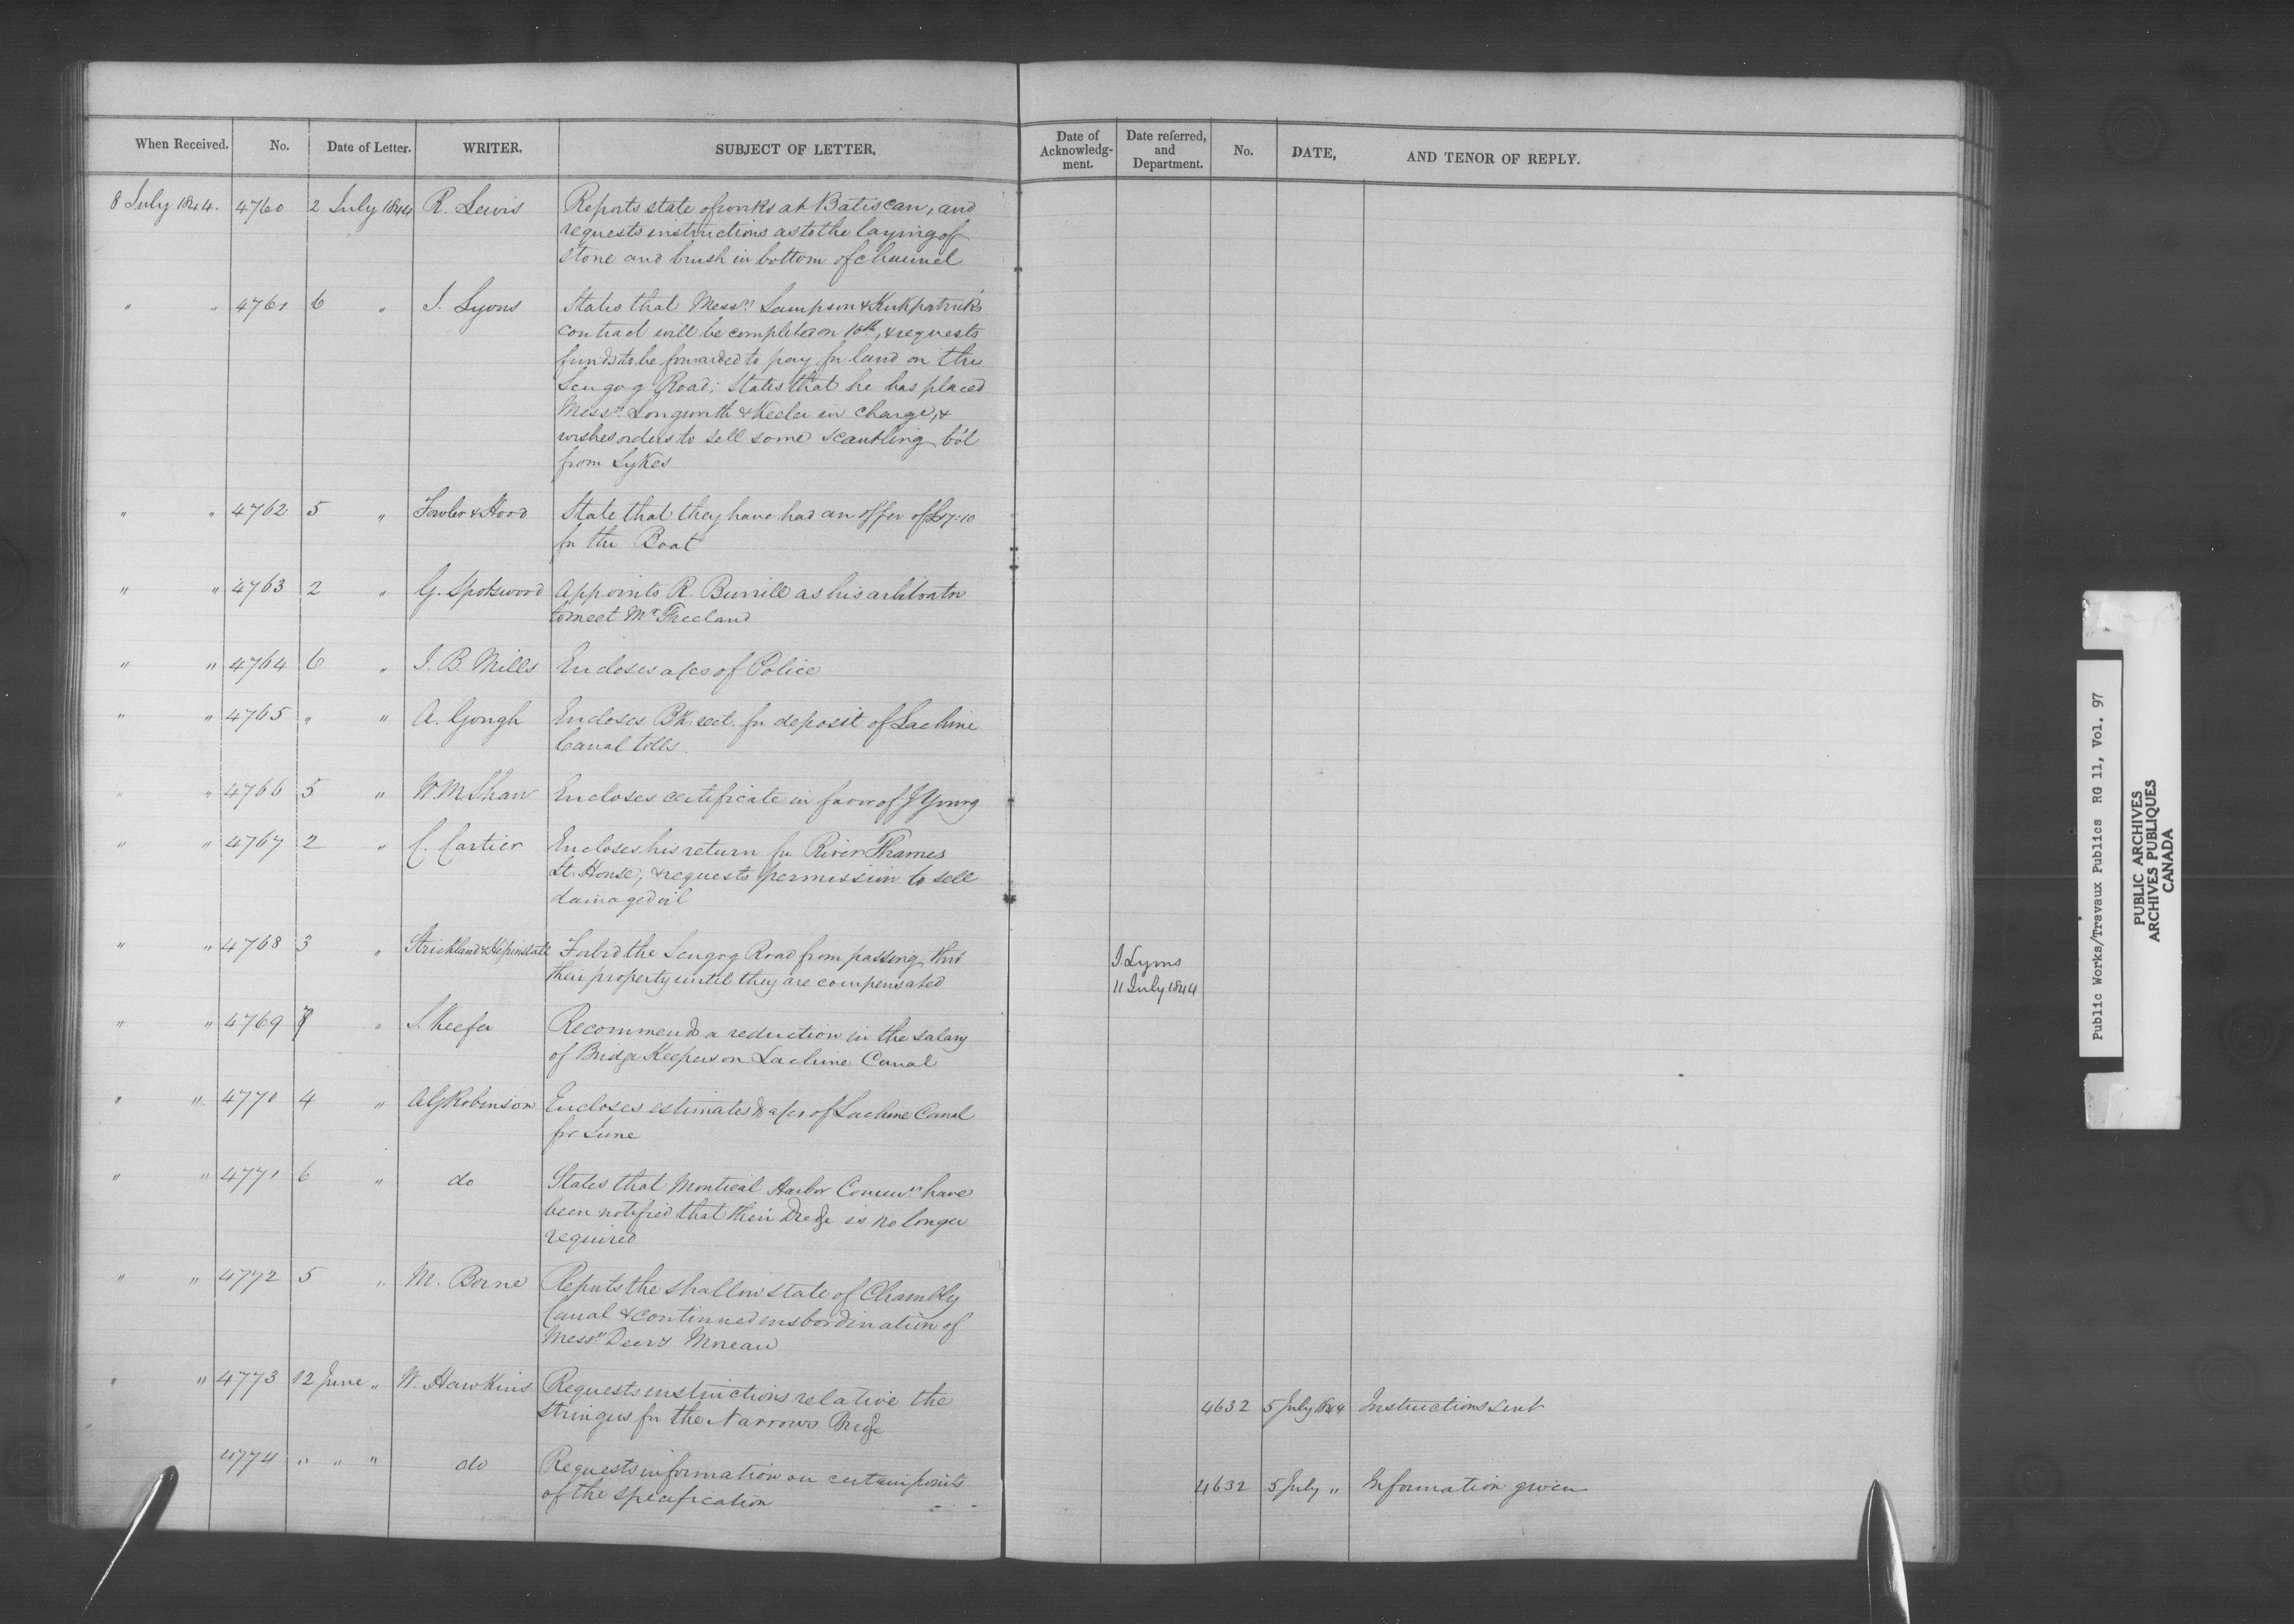 When Received. No. Date of Letter. WRITER. SUBJECT OF LETTER. Date of Acknowledg-ment. Date referred, and Department. No. DATE, AND TENOR OF REPLY.
8 July 1844. 4760 2 July 1844 R. Lewis Reports state of works at Batiscan, and
requests instructions as to the laying of
stone and brush in bottom of channel
" " 4761 6 " J. Lyons States that Messrs Sampson & Kirkpatrick's
contract will be completed on 10th, & requests
funds to be forwarded to pay for land on the
Scugog Road; States that he has placed
Messrs Longworth & Keeler in charge, &
wishes orders to sell some scantling bo't
from Sykes
" " 4762 5 " Fowler & Hood State that they have had an offer of £17:10
for the Boat
" " 4763 2 " G. Spotswood Appoints R. Burrill as his arbitrator
to meet Mr Freeland
" " 4764 6 " J. B. Mills Encloses a/cs of Police
" " 4765 " " A. Gough Encloses Bk. rect. for deposit of Lachine
Canal tolls.
" " 4766 5 " W. M. Shaw Encloses certificate in favor of J Young
" " 4767 2 " C. Cartier Encloses his return for River Thames
Lt. House, & requests permission to sell
damaged oil
" " 4768 3 " Strickland & Forbid the Scugog Road from passing thro'
their property until they are compensated
J. Lyons
11 July 1844
" " 4769 7 " S. Keefer Recommends a reduction in the salary
of Bridge Keepers on Lachine Canal
" " 4770 4 " A G Robinson Encloses estimates & a/cs of Lachine Canal
for June
" " 4771 6 " do States that Montreal Harbor Commrs have
been notified that their Dredge is no longer
required
" " 4772 5 " M. Borne Reports the shallow state of Chambly
Canal & continued insbordination of
Messrs Deery Moreau
" " 4773 12 June " W. Hawkins Requests instructions relative the
stringers for the Narrows Bridge
4632 5 July 1844 Instructions sent
4774 " " " do Requests information on certain points
of the specification
4632 5 July " Information given
Public Works/Travaux Publics RG 11, Vol. 97
PUBLIC ARCHIVES
ARCHIVES PUBLIQUES
CANADA